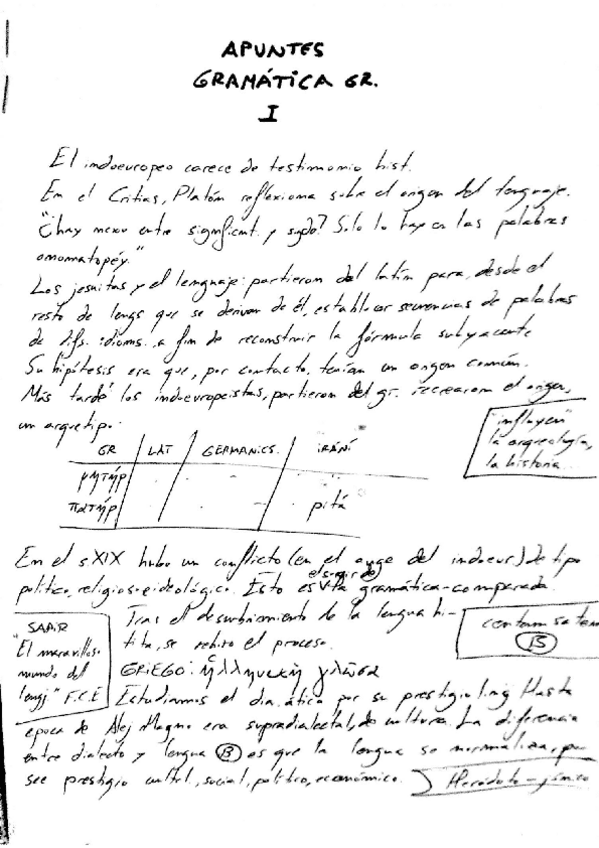 APUNTES
GRAMÁTICA GR.
I
El indoeuropeo carece de testimonio hist.
En el Critias, Platón reflexiona sobre el origen del lenguaje.
"¿hay nexo entre significant. y sgdo? Solo lo hay en las palabras
onomatopéy."
Los jesuitas y el lenguaje: partieron del latín para, desde el
resto de lengs que se derivan de él, establecer secuencias de palabras
de difs. idioms., a fin de reconstruir la fórmula subyacente
Su hipótesis era que, por contacto, tenían un origen común.
Más tarde los indoeuropeistas, partieron del gr. recrearon el origen,
un arquetipo.
"influyen"
la arqueología,
la historia...
GR LAT GERMANICS. IRÁNÍ
μητήρ
πατήρ pitá
En el s.XIX hubo un conflicto (en el auge del indoeur) de tipo
político, religioso e ideológico. Esto es la gramática-comparada.
Tras el descubrimiento de la lengua hi-
tita, se rehizo el proceso.
centum satem
B
"El maravilloso
mundo del
lengj" F.C.E
GRIEGO: ἑλληνική γλῶσα
Estudiamos el dia. ático por su prestigio ling. Hasta
época de Alej Magno era supradialectal, de cultura. La diferencia
entre dialecto y lengua B es que la lengua se normaliza, po-
see prestigio cultrl., social, político, económico. Heródoto - jónico